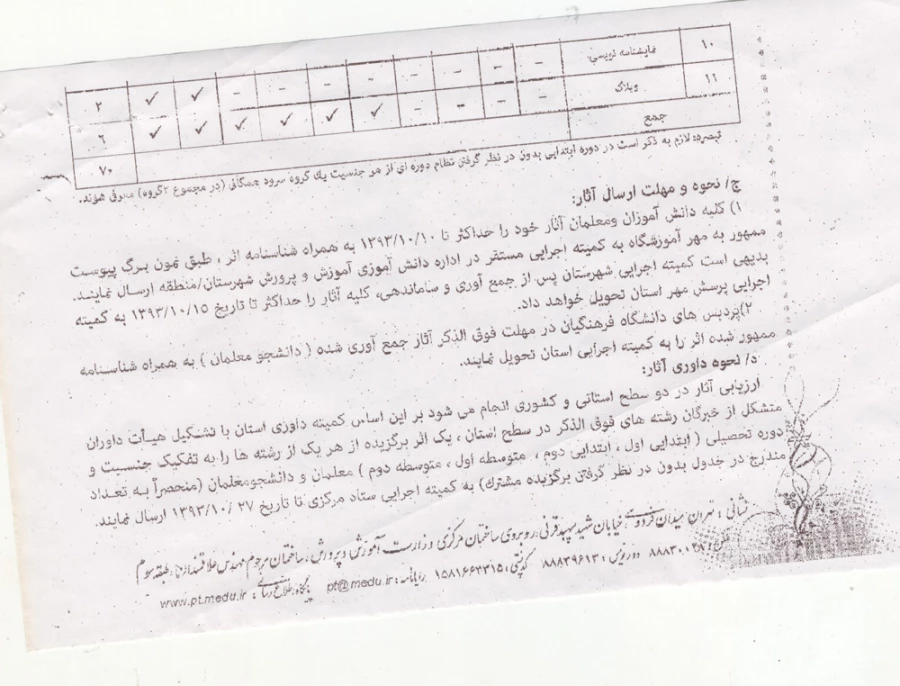 ۱۰ نمایشنامه نویسی – – – – – – – – ✓ ✓ ۲
۱۱ وبلاگ – – – – ✓ ✓ ✓ ✓ ✓ ✓ ۶
جمع ۷۰
تبصره: لازم به ذکر است در دوره ابتدایی بدون در نظر گرفتن نظام دوره ای از هر جنسیت یك گروه سرود همگانی (در مجموع ۲گروه) معرفی شوند.
ج/ نحوه و مهلت ارسال آثار:
۱) کلیه دانش آموزان ومعلمان آثار خود را حداکثر تا ۱۳۹۳/۱۰/۱۰ به همراه شناسنامه اثر ، طبق نمون برگ پیوست
ممهور به مهر آموزشگاه به کمیته اجرایی مستقر در اداره دانش آموزی آموزش و پرورش شهرستان/منطقه ارسال نمایند.
بدیهی است کمیته اجرایی شهرستان پس از جمع آوری و ساماندهی، کلیه آثار را حداکثر تا تاریخ ۱۳۹۳/۱۰/۱۵ به کمیته
اجرایی پرسش مهر استان تحویل خواهد داد.
۲)پردیس های دانشگاه فرهنگیان در مهلت فوق الذکر آثار جمع آوری شده ( دانشجو معلمان ) به همراه شناسنامه
ممهور شده اثر را به کمیته اجرایی استان تحویل نمایند.
د/ نحوه داوری آثار:
ارزیابی آثار در دو سطح استانی و کشوری انجام می شود بر این اساس کمیته داوری استان با تشکیل هیأت داوران
متشکل از خبرگان رشته های فوق الذکر در سطح استان ، یک اثر برگزیده از هر یک از رشته ها را به تفکیک جنسیت و
دوره تحصیلی ( ابتدایی اول ، ابتدایی دوم ، متوسطه اول ، متوسطه دوم ) معلمان و دانشجومعلمان (منحصراً به تعداد
مندرج در جدول بدون در نظر گرفتن برگزیده مشترك) به کمیته اجرایی ستاد مرکزی تا تاریخ ۲۷ /۱۳۹۳/۱۰ ارسال نمایند.
نشانی : تهران میدان فردوسی، خیابان شهید سپهبد قرنی، روبروی ساختمان مرکزی وزارت آموزش و پرورش، ساختمان مرحوم مهندس علاقمندان، طبقه سوم
تلفن: دورنویس: ۸۸۸۳۹۶۱۳ کدپستی: ۱۵۸۱۶۶۳۳۱۵ رایانامه: pt@medu.ir پایگاه اطلاع رسانی: www.pt.medu.ir